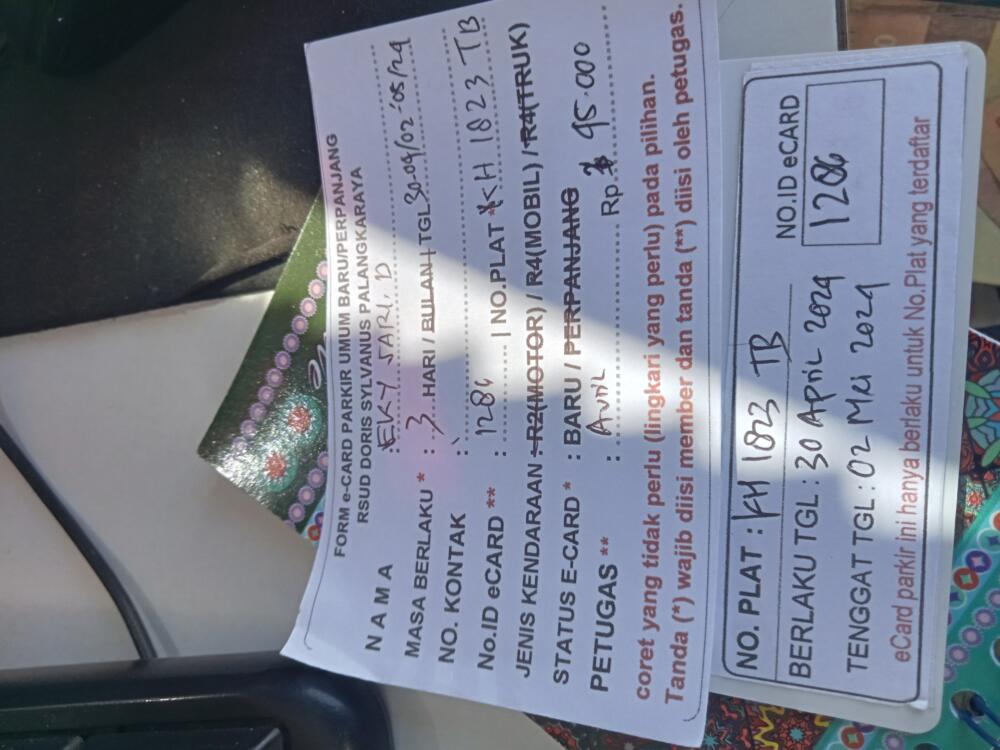 FORM e-CARD PARKIR UMUM BARU/PERPANJANG
RSUD DORIS SYLVANUS PALANGKARAYA
N A M A : EKY SARI. D
MASA BERLAKU * : 3 HARI / BULAN | TGL 30-04/02-05/24
NO. KONTAK :
No.ID eCARD ** : 1286 | NO.PLAT * KH 1823 TB
JENIS KENDARAAN : R2(MOTOR) / R4(MOBIL) / R4(TRUK)
STATUS E-CARD * : BARU / PERPANJANG
PETUGAS ** : Avril Rp 45.000
coret yang tidak perlu (lingkari yang perlu) pada pilihan.
Tanda (*) wajib diisi member dan tanda (**) diisi oleh petugas.
NO. PLAT : KH 1823 TB
NO.ID eCARD
1286
BERLAKU TGL : 30 APRIL 2024
TENGGAT TGL : 02 MEI 2024
eCard parkir ini hanya berlaku untuk No.Plat yang terdaftar